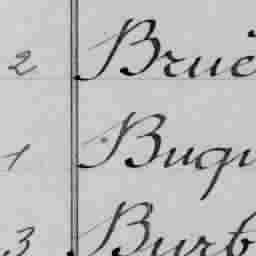 2 Brue
1 Buqu
3 Burb